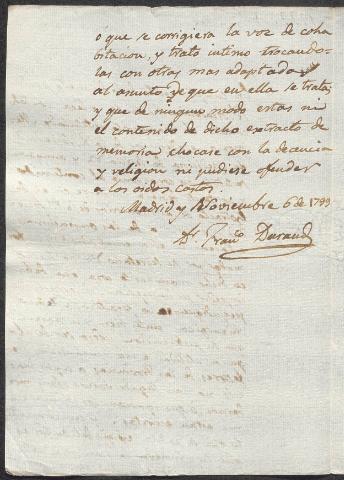 ó que se corrigiera la voz de coha
bitacion, y trato intimo trocando-
las con otras mas adaptadas
al asunto de que en ella se trata;
y que de ningun modo estas ni
el contenido de dicho extracto de
memoria chocase con la decencia
y religion ni pudiese ofender
a los oidos castos.
Madrid y Noviembre 6 de 1799
Dr. Franco Durand